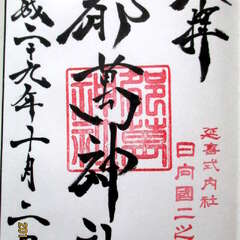 拝
延喜式内社
日向國二之
都萬神社
平成二十九年十月二